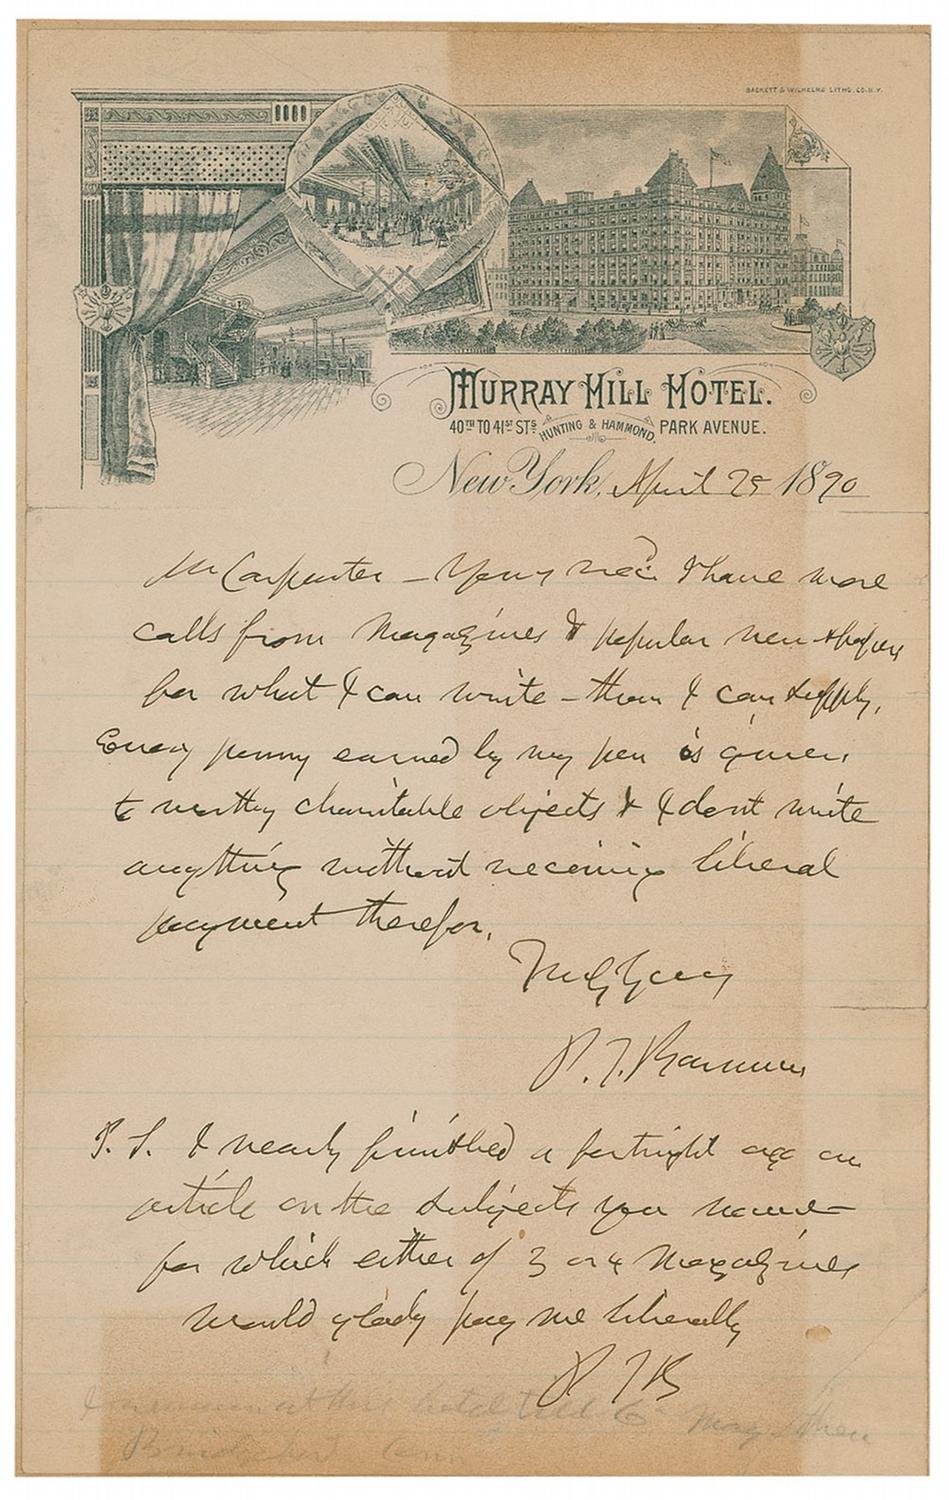 SACKETT & WILHELMS LITHO. CO. N.Y.
MURRAY HILL HOTEL.
40TH TO 41ST STS. HUNTING & HAMMOND. PARK AVENUE.
New York, April 25 1890
Mr Carpenter – Yours recd. I have more
calls from Magazines & popular newspapers
for what I can write – than I can supply.
Every penny earned by my pen is given
to worthy charitable objects & I dont write
anything without receiving liberal
payment therefor.
Truly Yours
P. T. Barnum
P. S. I nearly finished a fortnight ago an
article on the subjects you name
for which either of 3 or 4 Magazines
would gladly pay me liberally
P T B
I remain at this hotel till 6 May then
Bridgeport Conn